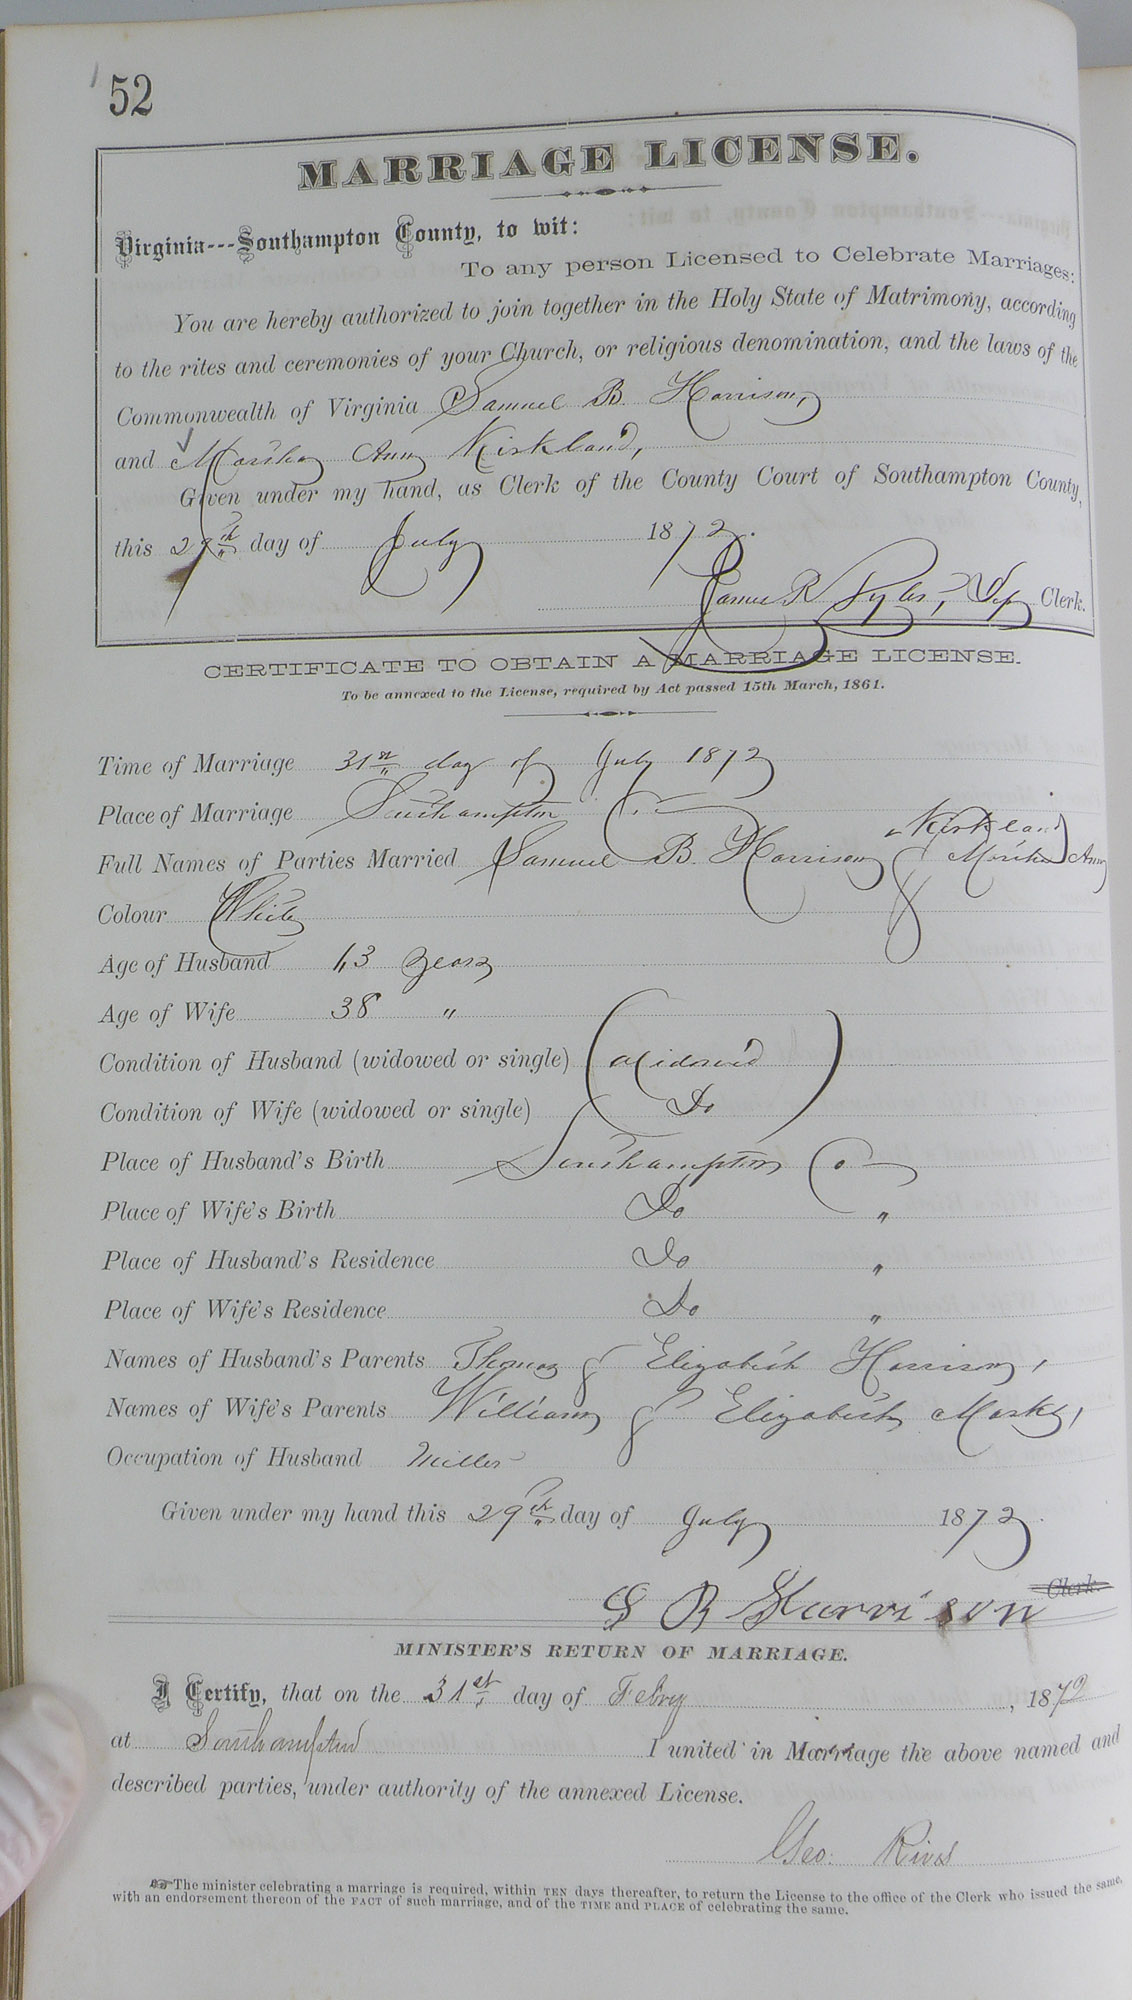 52
MARRIAGE LICENSE.
Virginia---Southampton County, to wit:
To any person Licensed to Celebrate Marriages:
You are hereby authorized to join together in the Holy State of Matrimony, according
to the rites and ceremonies of your Church, or religious denomination, and the laws of the
Commonwealth of Virginia Samuel B. Harrison,
and Martha Ann Kirkland,
Given under my hand, as Clerk of the County Court of Southampton County,
this 29th day of July 1872.
James R Tyler, Dep Clerk.
CERTIFICATE TO OBTAIN A MARRIAGE LICENSE.
To be annexed to the License, required by Act passed 15th March, 1861.
Time of Marriage 31st day of July 1872
Place of Marriage Southampton Co
Full Names of Parties Married Samuel B. Harrison & Martha Ann Kirkland
Colour White
Age of Husband 43 years
Age of Wife 38 "
Condition of Husband (widowed or single) Widow'd
Condition of Wife (widowed or single) Do
Place of Husband's Birth Southampton Co
Place of Wife's Birth Do "
Place of Husband's Residence Do "
Place of Wife's Residence Do "
Names of Husband's Parents Thomas & Elizabeth Harrison,
Names of Wife's Parents William & Elizabeth
Occupation of Husband Miller
Given under my hand this 29th day of July 1872
Clerk.
S B Harrison
MINISTER'S RETURN OF MARRIAGE.
I Certify, that on the 31st day of Febry, 1872
at Southampton I united in Marriage the above named and
described parties, under authority of the annexed License.
Geo. Rives
The minister celebrating a marriage is required, within TEN days thereafter, to return the License to the office of the Clerk who issued the same,
with an endorsement thereon of the FACT of such marriage, and of the TIME and PLACE of celebrating the same.